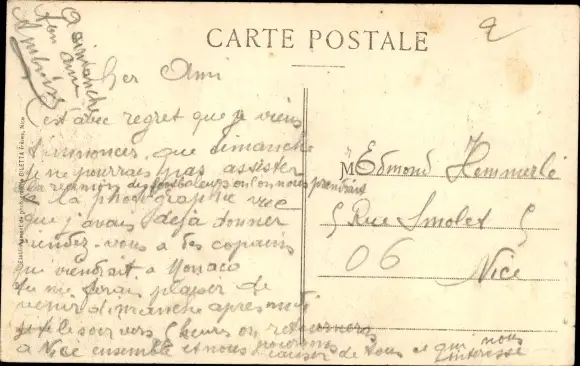 CARTE POSTALE
Cher Ami
C'est avec regret que je viens
t'annoncer que dimanche
je ne pourrais pas assister
la reunion des footballeurs ou l'on nous prendrait
a la photographie vue
que j'avais dejà donner
rendez-vous a des copains
qui viendrait a Monaco
tu me ferais plaisir de
venir dimanche après midi
et le soir vers 5 heures on retournera
a Nice ensemble et nous pourrions causer de tous ce qui nous
interesse
a dimanche
Ton ami
M Edmond Hemmerlé
5 Rue Smolet 5
06 Nice
GILETTA Frères, Nice